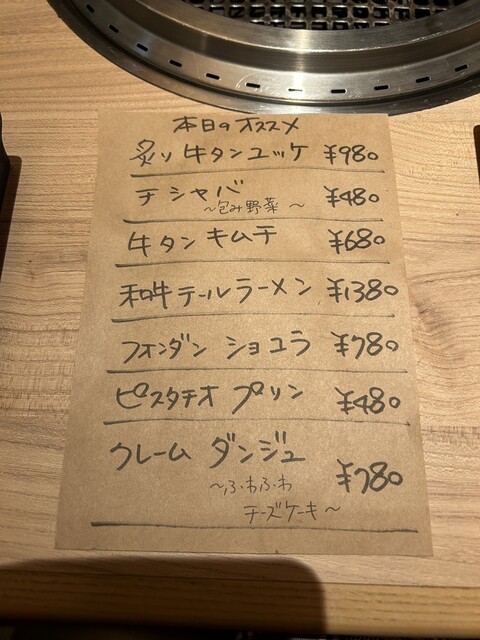 本日のオススメ
炙り牛タンユッケ ¥980
チシャバ ¥480
～包み野菜～
牛タンキムチ ¥680
和牛テールラーメン ¥1380
フォンダン ショコラ ¥780
ピスタチオ プリン ¥480
クレーム ダンジュ ¥780
～ふわふわ
チーズケーキ～